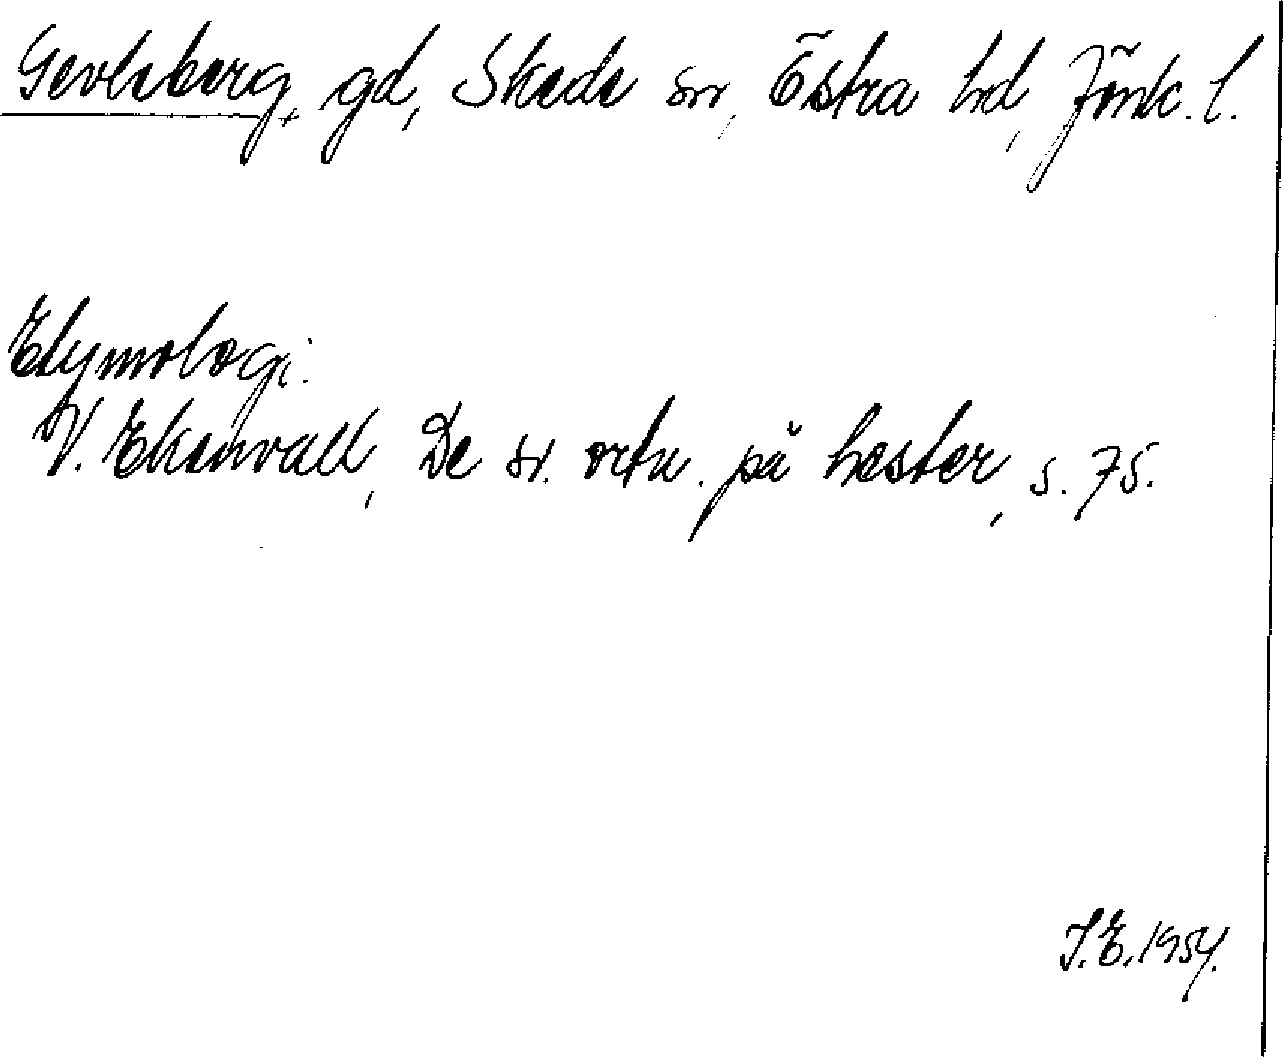 Gevleberg, gd, Skede sn, Östra hd, Jönk. l.
Etymologi.
V. Ekenvall, De sv. ortn. på hester, s. 75.
I.E. 1954.